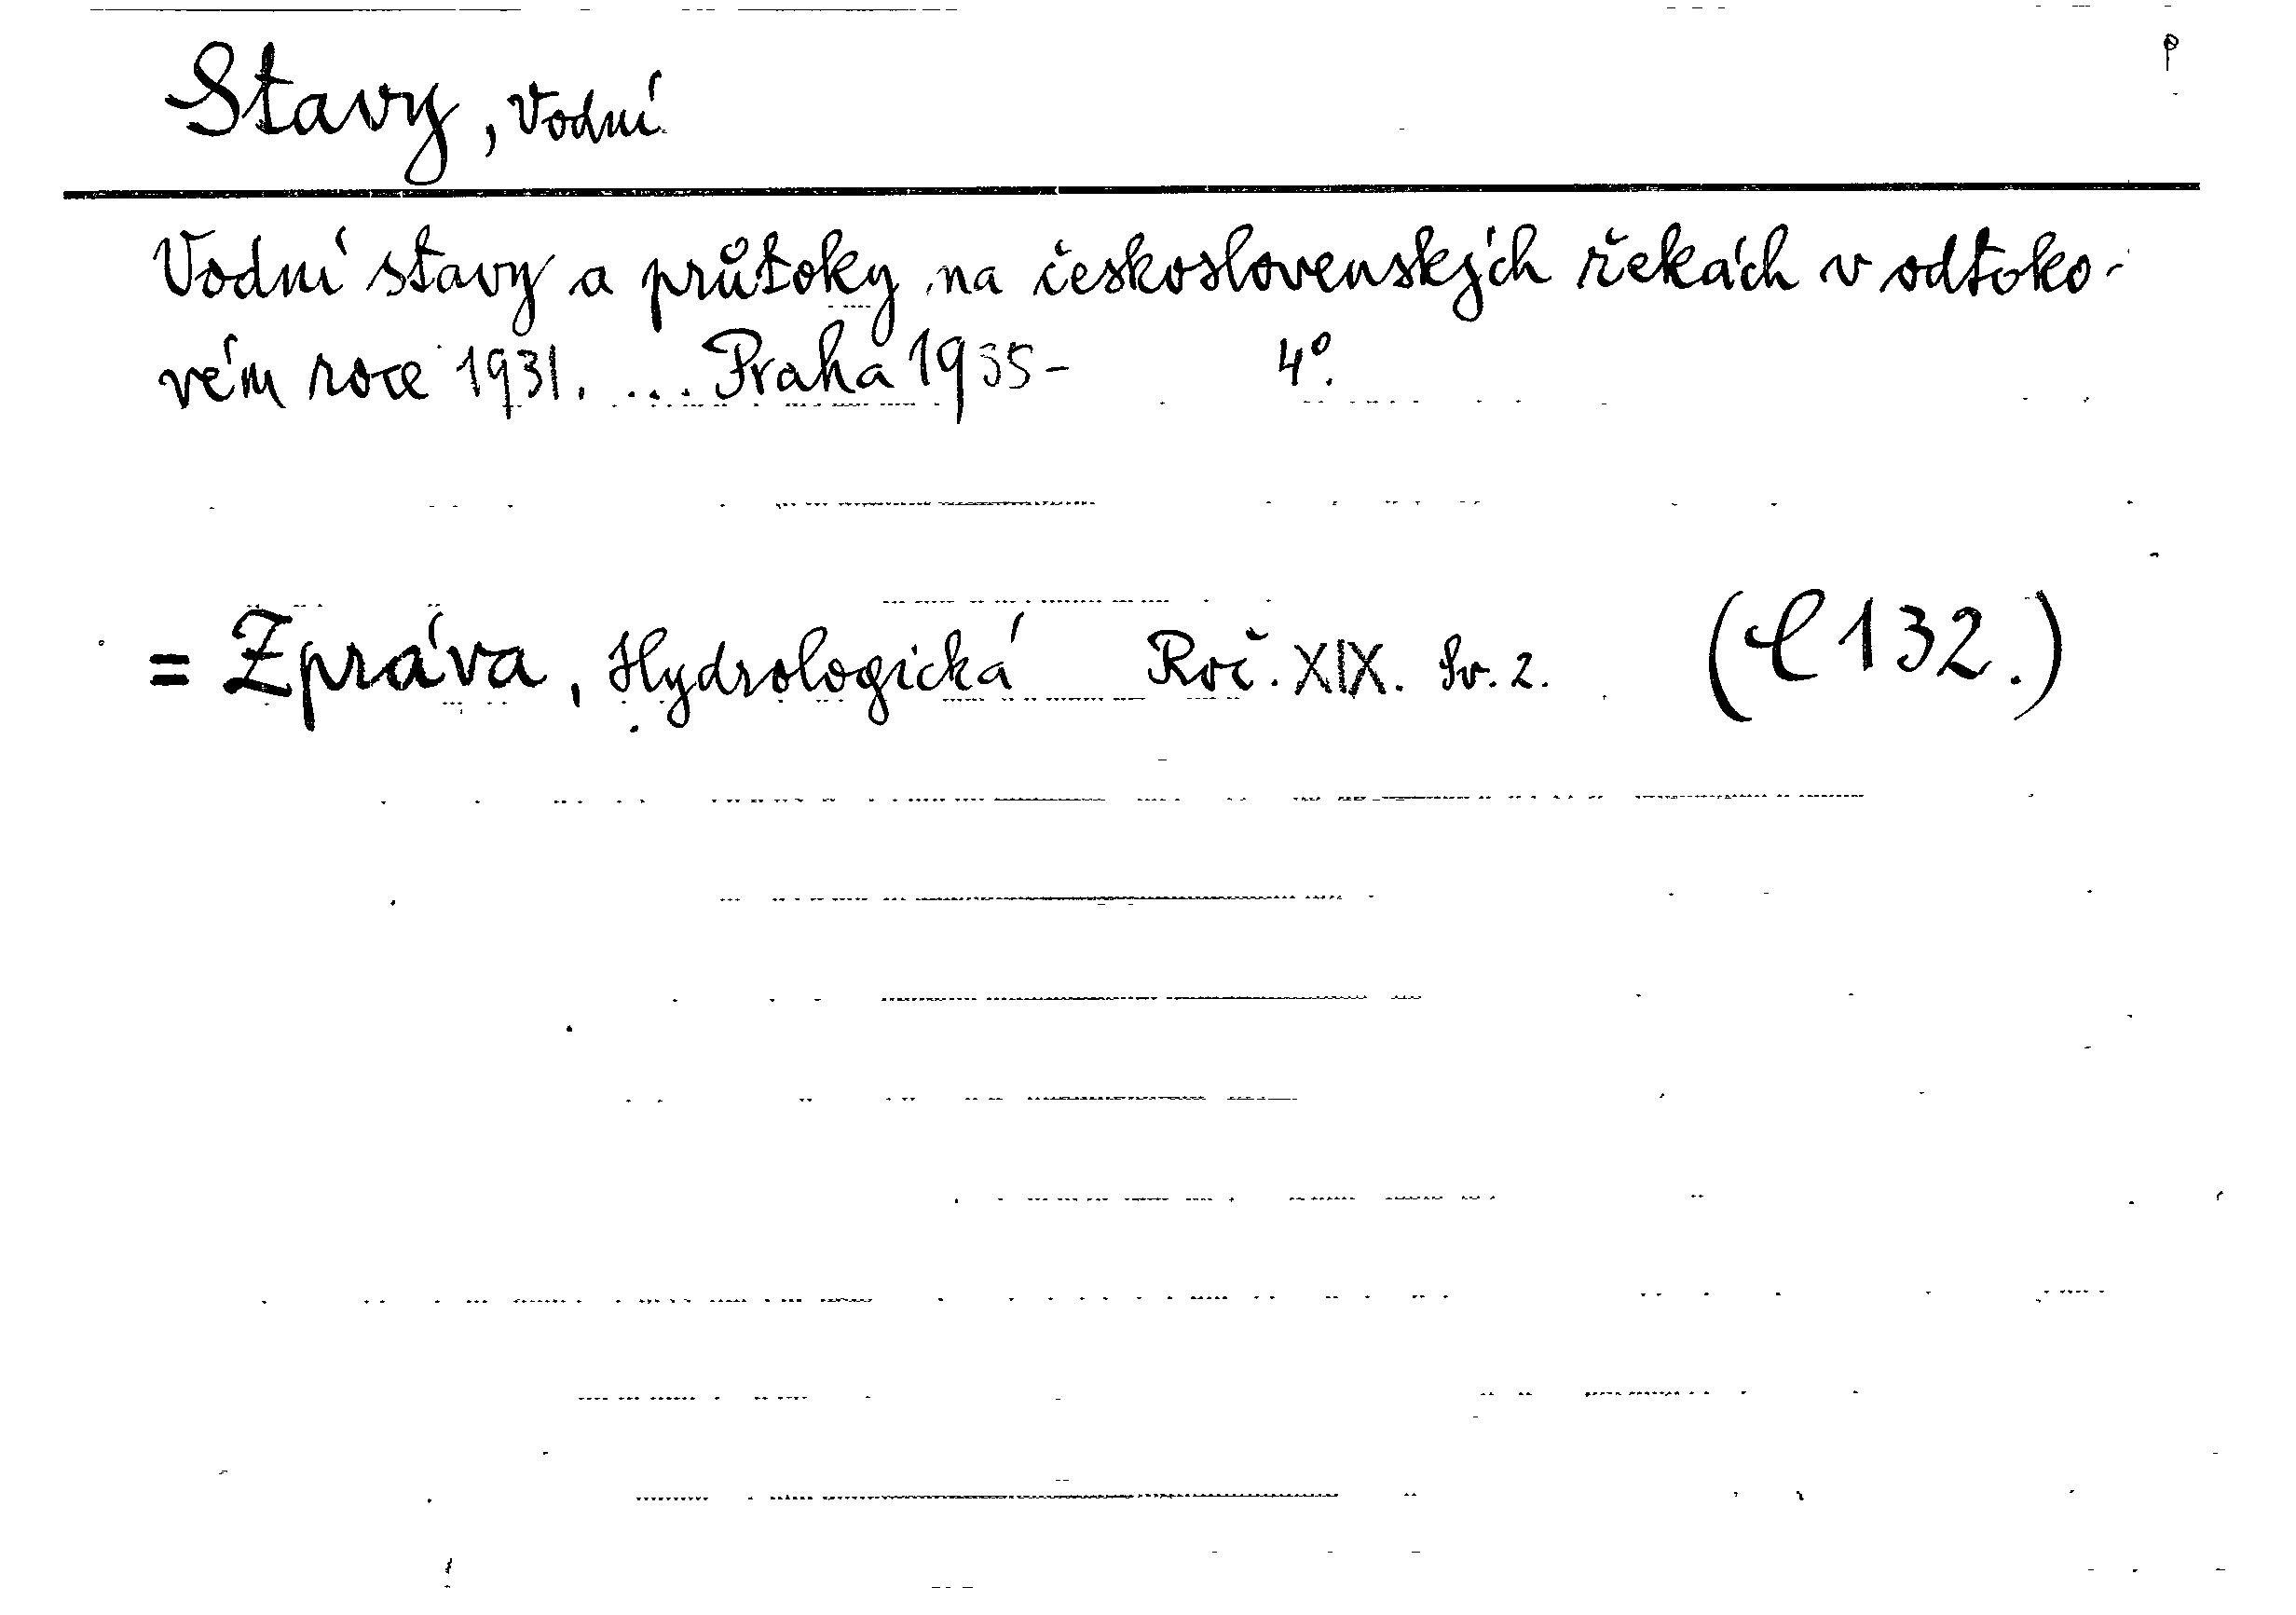 Stavy, Vodní
Vodní stavy a průtoky na československých řekách v odtoko-
vém roce 1931. ... Praha 1935- 4°.
= Zpráva, Hydrologická Roč. XIX. Sv. 2. (C 132.)